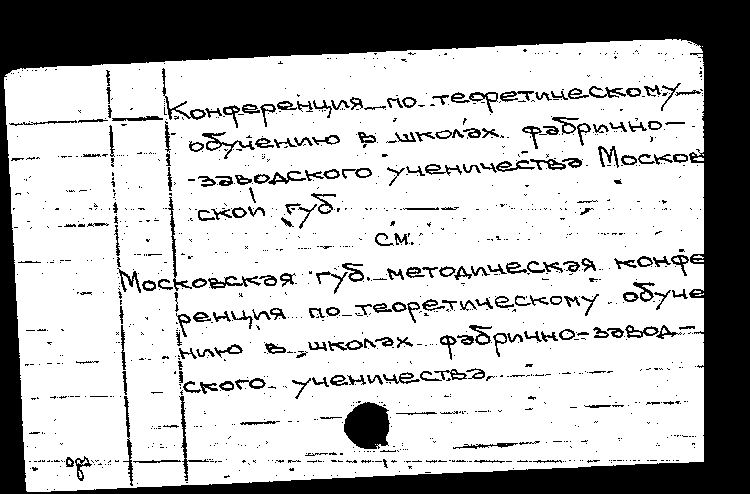 Конференция по теоретическому
обучению в школах фабрично-
-заводского ученичества Москов
ской губ.
см.
Московская губ. методическая конфе
ренция по теоретическому обуче
нию в школах фабрично-завод-
ского ученичества.